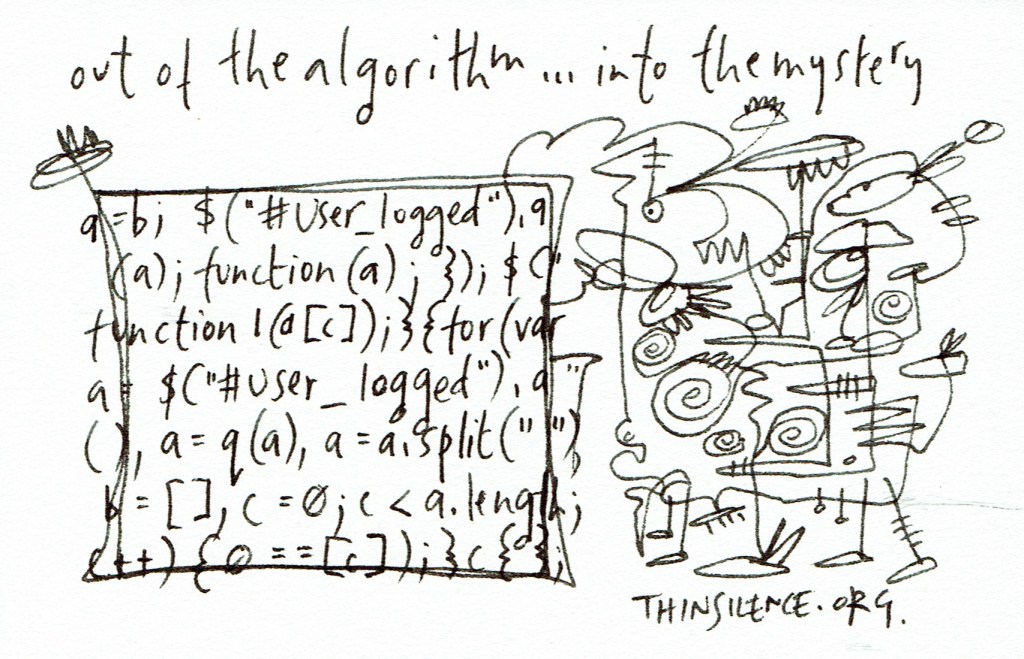 out of the algorithm... into the mystery
a=b; $("#User_logged"),a
(a); function(a); }); $("
function l(a[c]);}{for(var
a = $("#User_logged"), a "
(), a = q(a), a = a.split(" ")
b = [], c = 0; c < a.length;
c++) { 0 ==[c]);}c{0};
THINSILENCE.ORG.